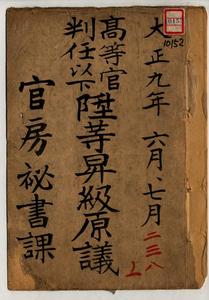 大正九年 六月、七月
高等官
判任以下
陞等昇級原議
官房秘書課
二三八
上
10152